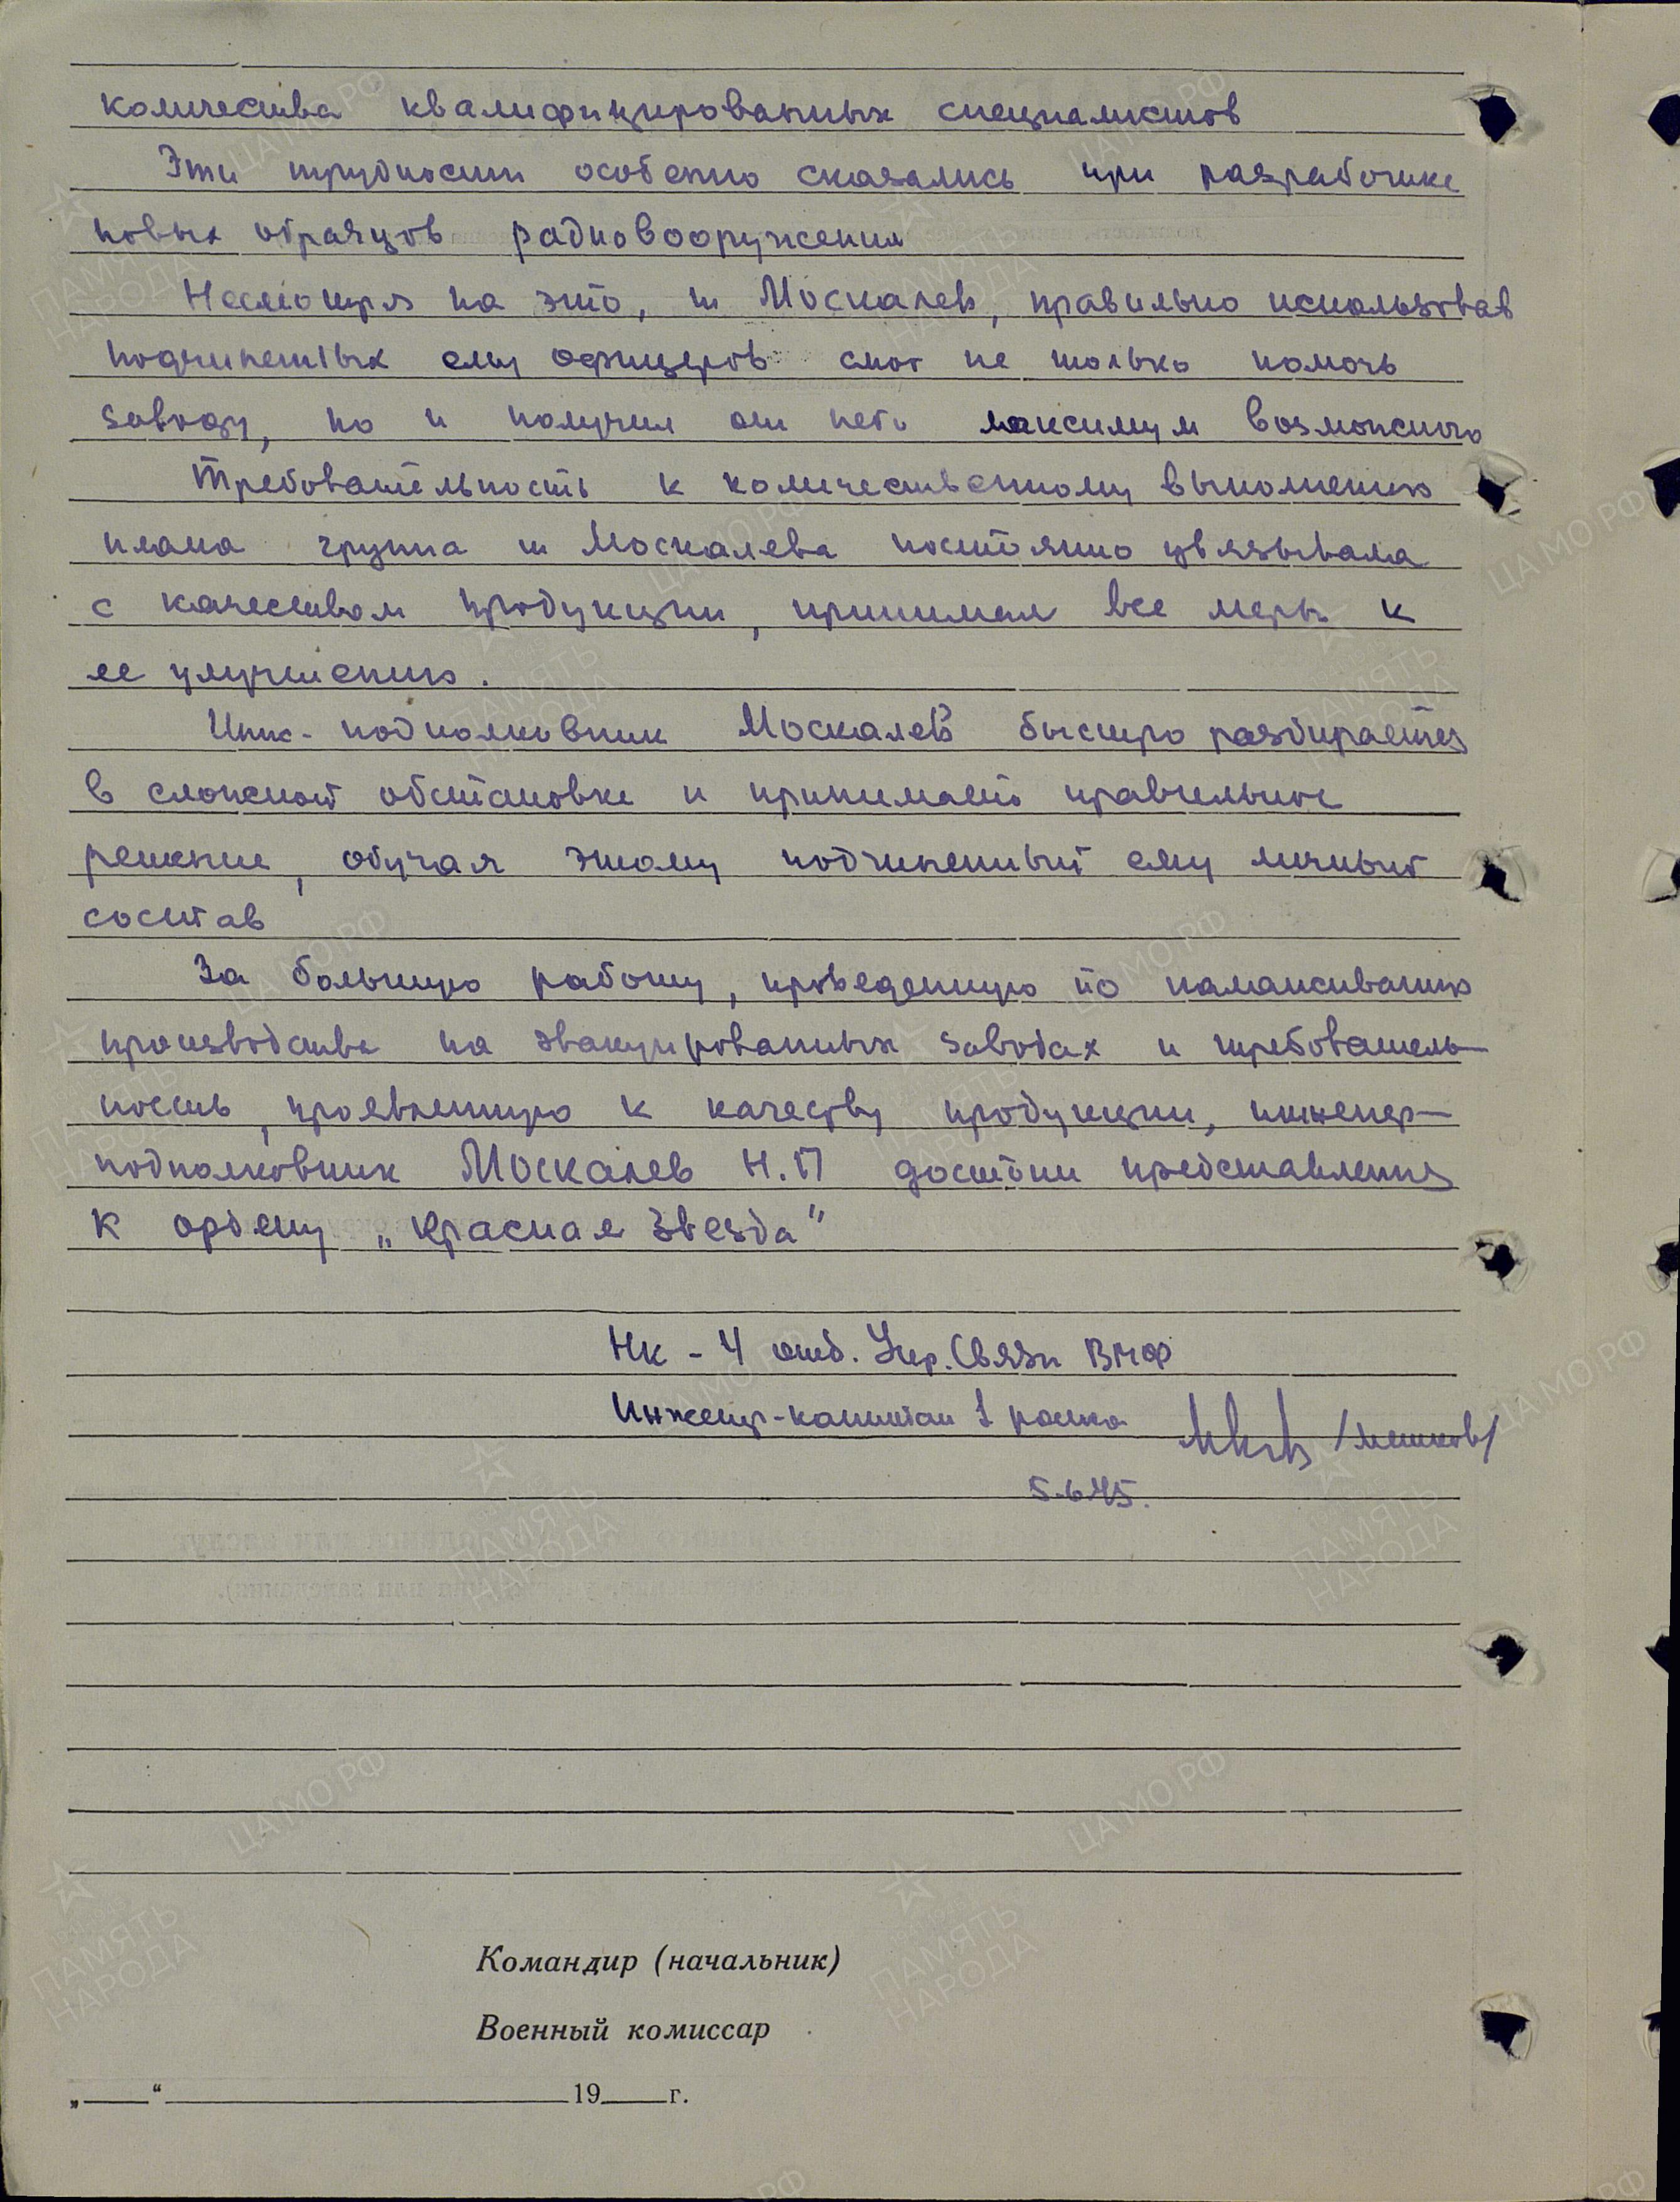 количества квалифицированных специалистов
Эти трудности особенно сказались при разработке
новых образцов радиовооружения
Несмотря на это, т Москалев, правильно использовав
подчиненных ему офицеров смог не только помочь
заводу, но и получил от него максимум возможного
Требовательность к количественному выполнению
плана группа т Москалева постоянно увязывала
с качеством продукции, принимая все меры к
ее улучшению.
Инж-подполковник Москалев быстро разбирается
в сложной обстановке и принимает правильное
решение, обучая этому подчиненный ему личный
состав
За большую работу, проведенную по налаживанию
производства на эвакуированных заводах и требователь-
ность, проявленную к качеству продукции, инженер-
подполковник Москалев Н.П достоин представления
к ордену „Красная Звезда"
Нк - 4 отд. Упр. Связи ВМФ
Инженер-капитан 1 ранга /Мешков/
5.6.45.
Командир (начальник)
Военный комиссар
„ “ 19 г.
ЦА МО РФ
ПАМЯТЬ НАРОДА